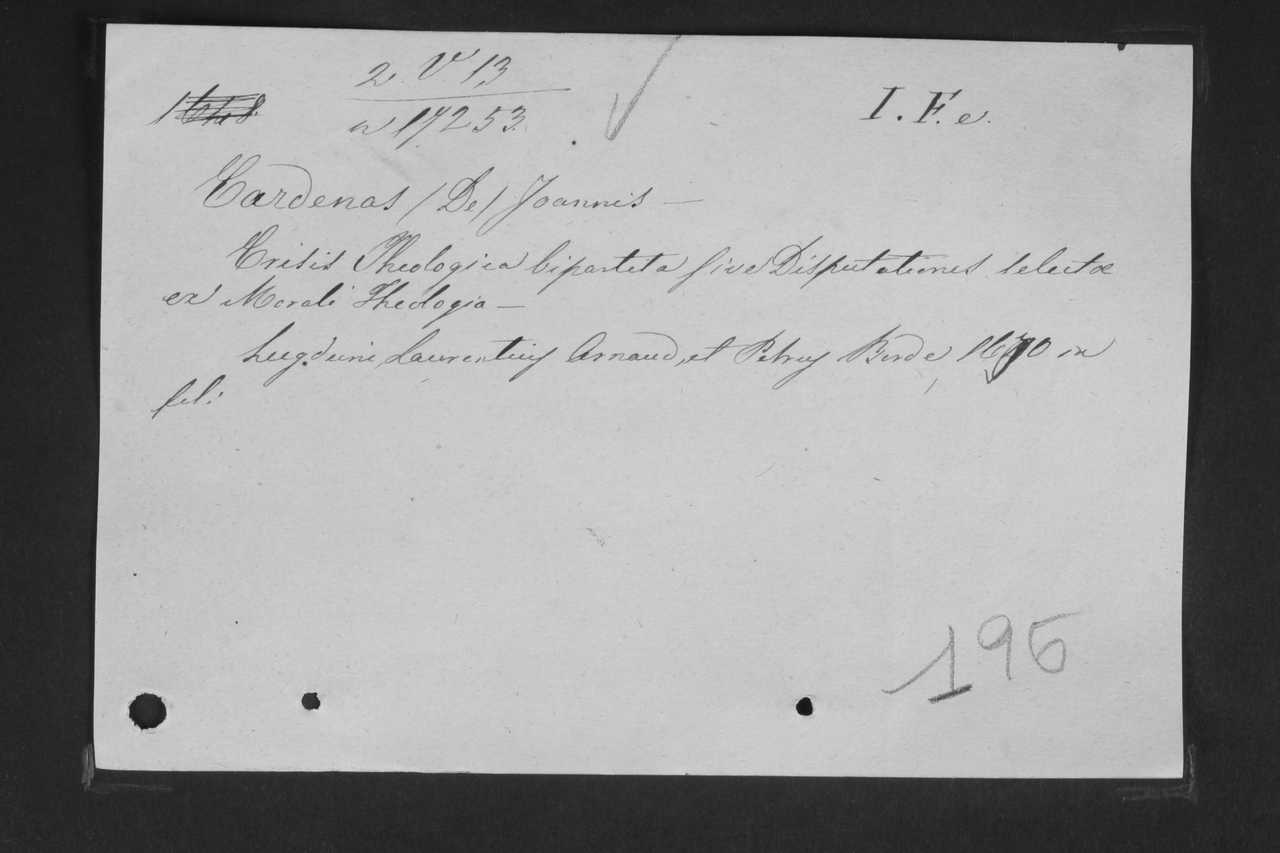 2 V 13
n 17253.
I. F. e.
Cardenas (De) Joannis —
Crisis Theologica bipartita sive Disputationes selectæ
ex Morali Theologia —
Lugduni, Laurentius Arnaud, et Petrus Borde, 1670 in
fol:
196